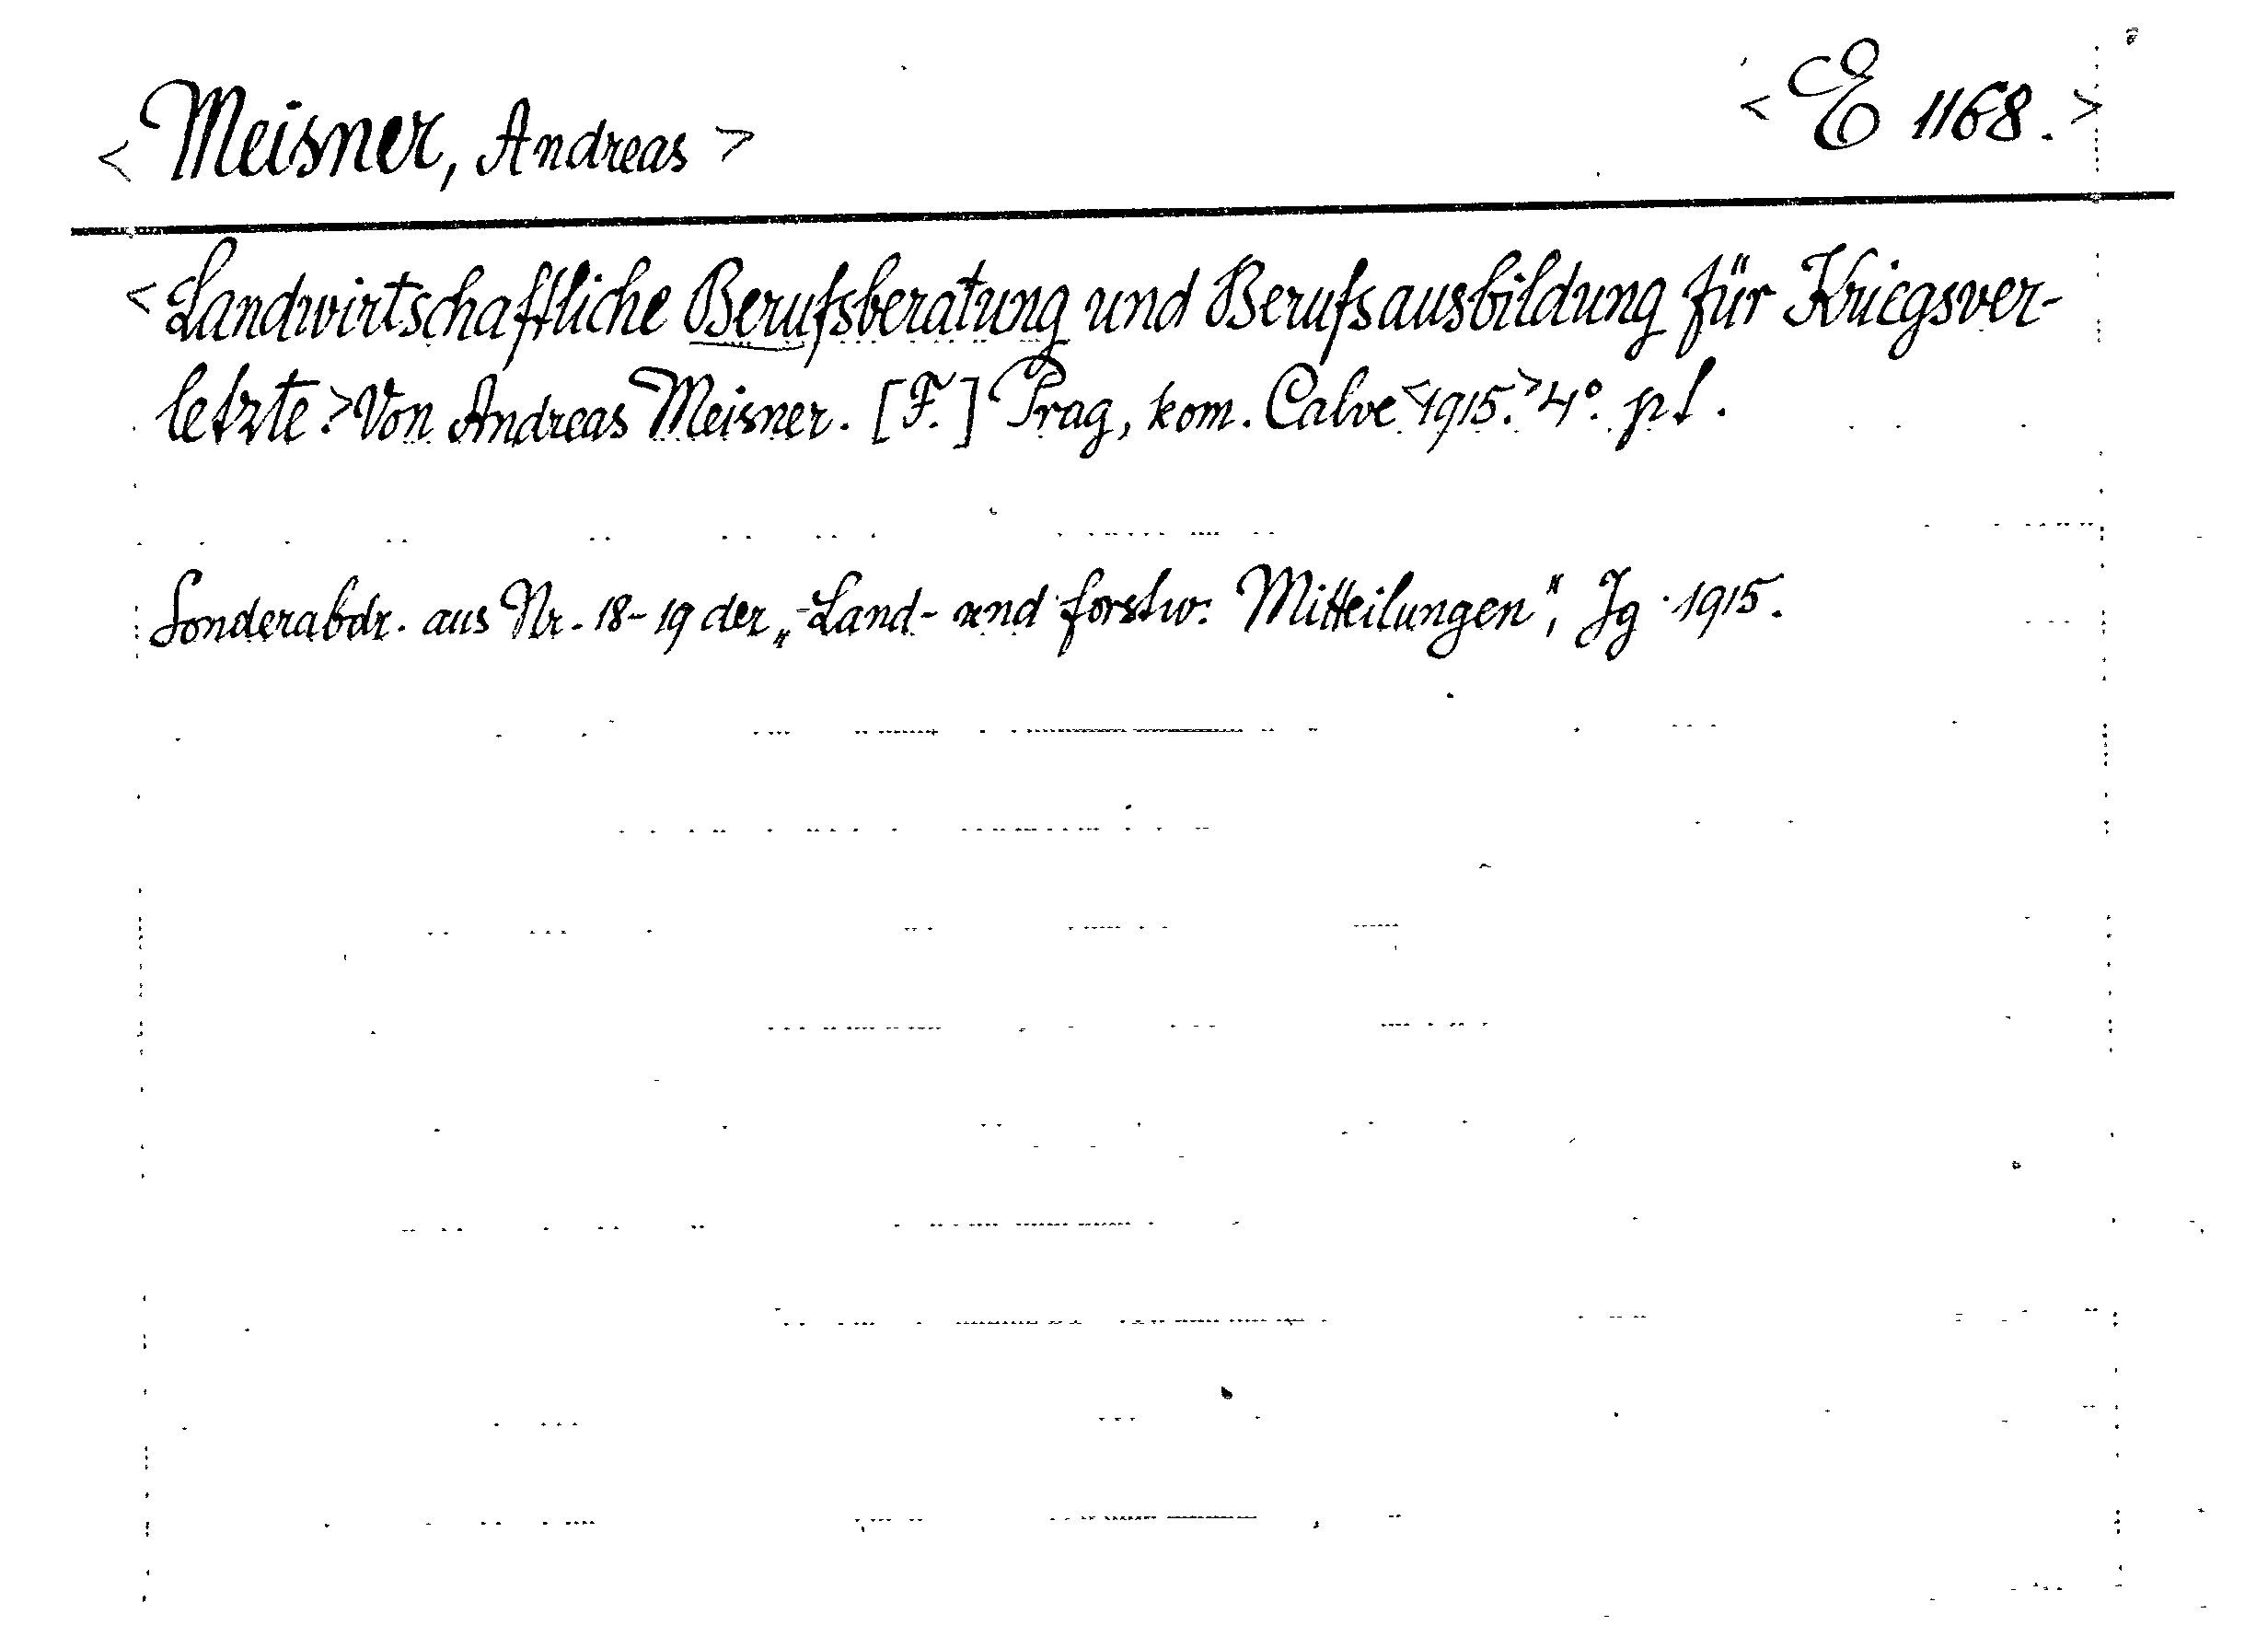 < Meisner, Andreas >
< E 1168. >
< Landwirtschaftliche Berufsberatung und Berufsausbildung für Kriegsver-
letzte. > Von Andreas Meisner. [F.] Prag, kom. Calve < 1915. > 4°. pf.
Sonderabdr. aus Nr. 18-19 der „Land- und forstw. Mitteilungen“, Jg. 1915.